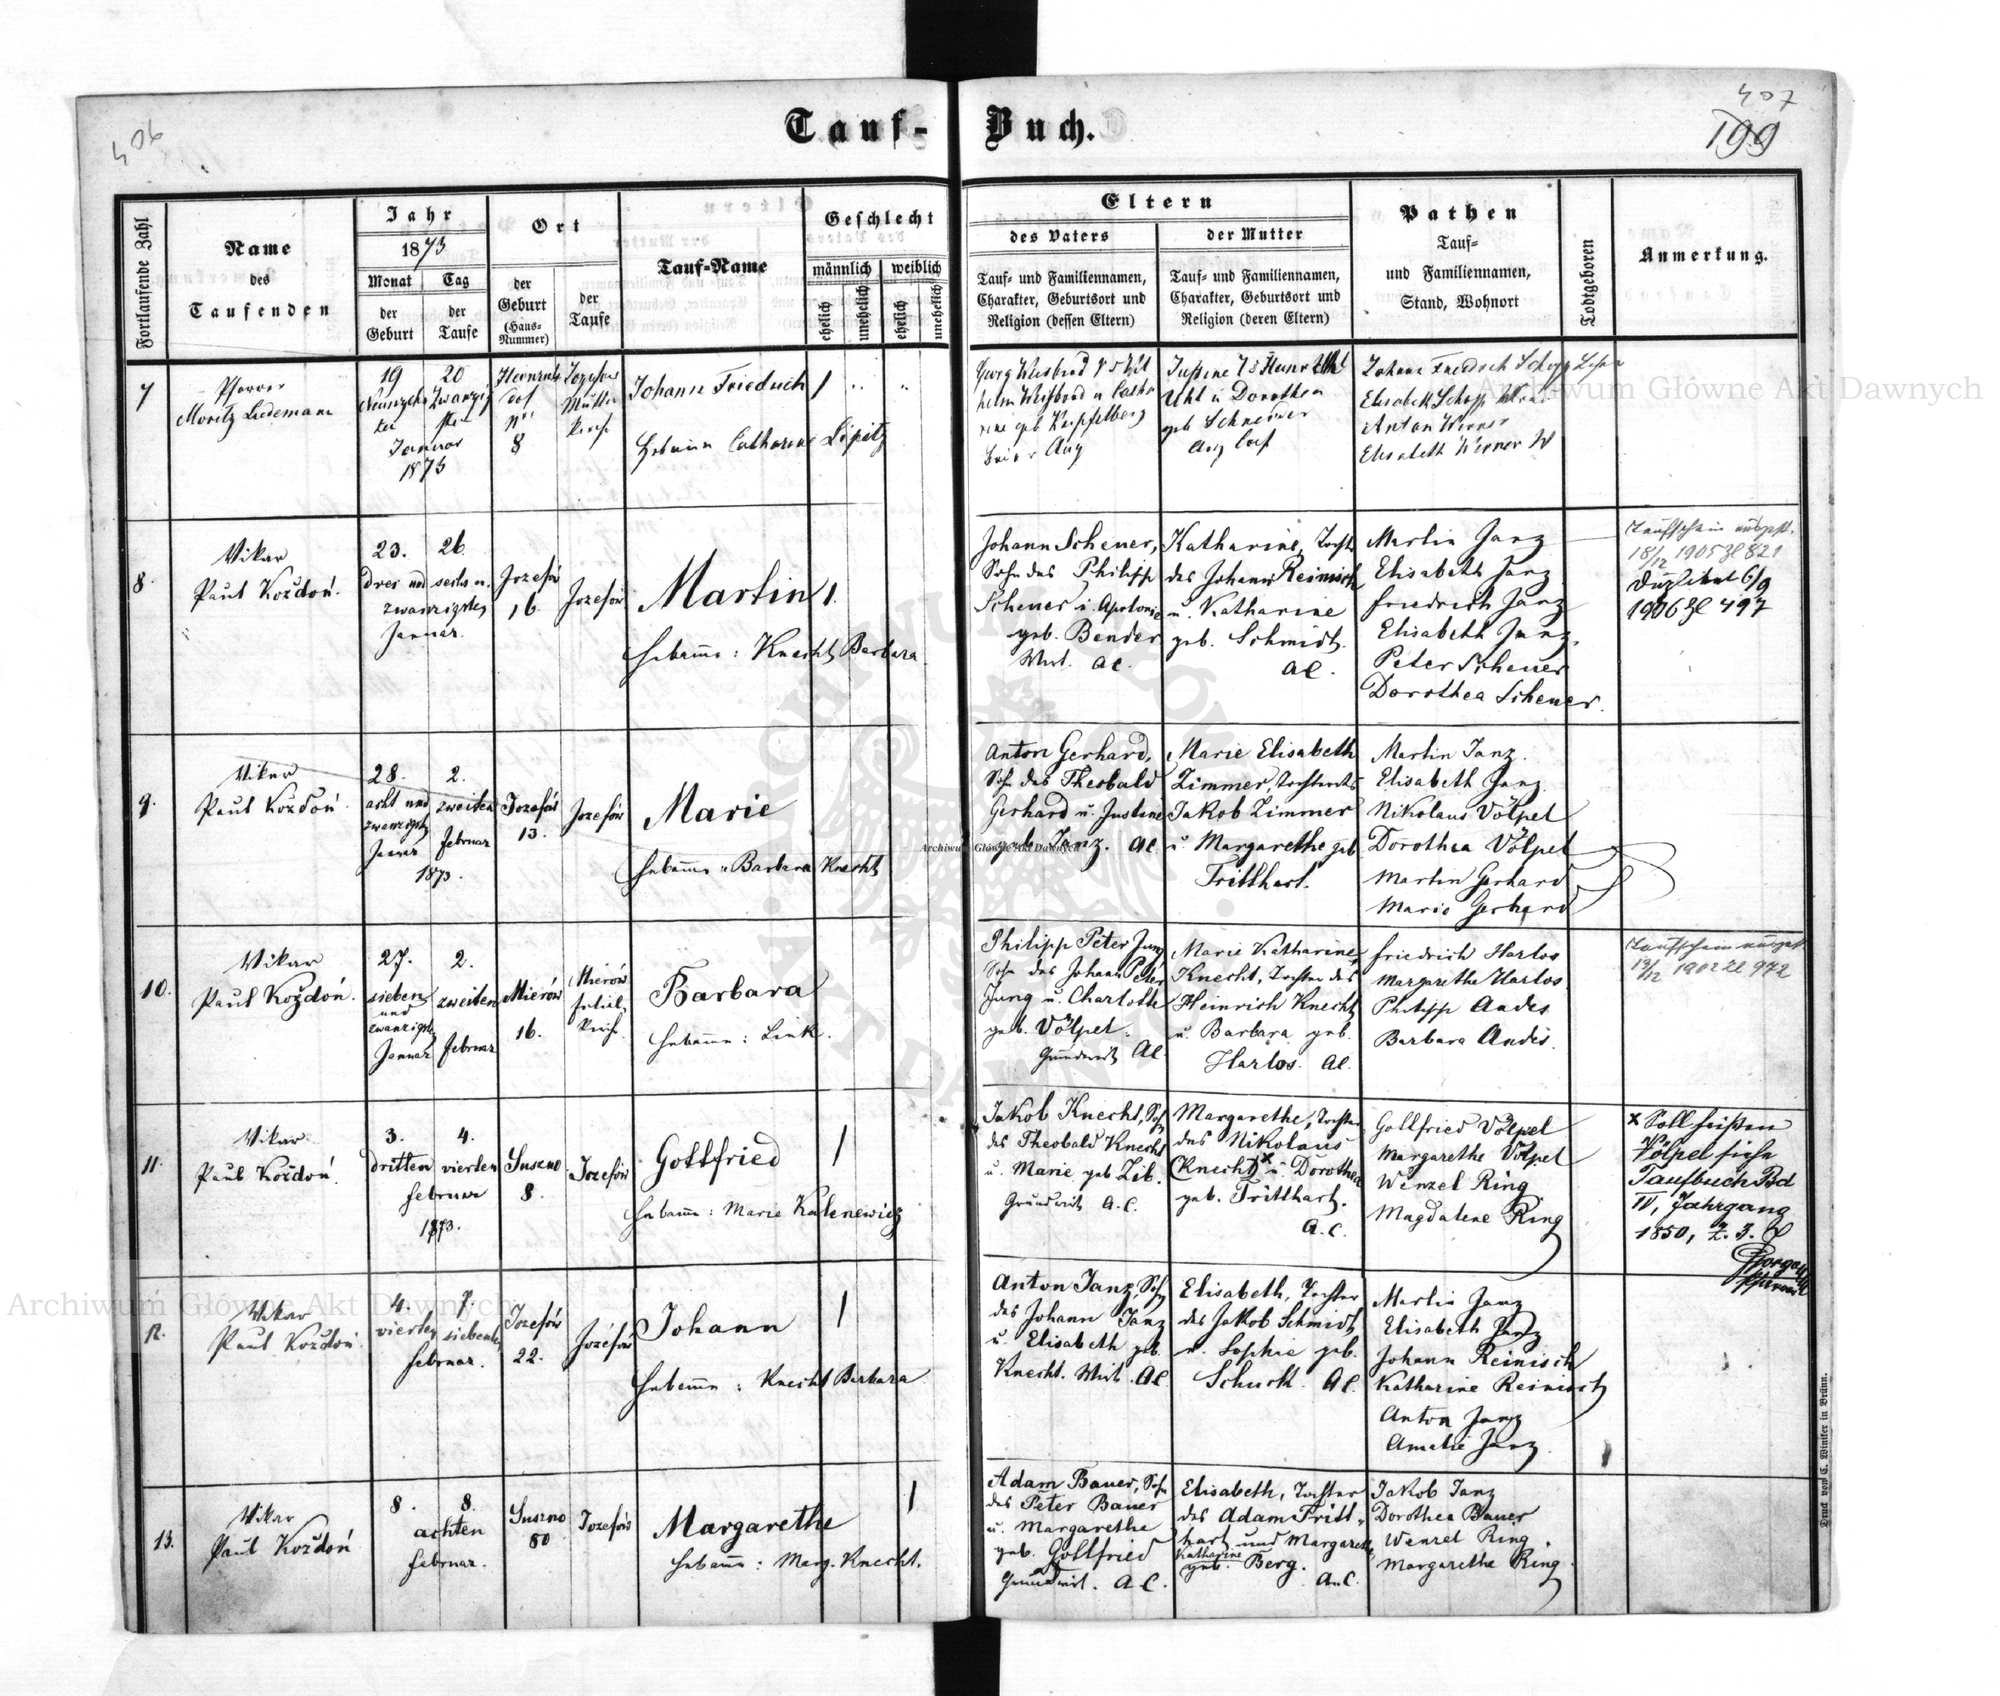 406
407
199
Tauf-Buch.
Fortlaufende Zahl
Name
des
Taufenden
Jahr
1873
Monat
Tag
der
Geburt
der
Taufe
Ort
der
Geburt
(Haus-
Nummer)
der
Taufe
Tauf-Name
Geschlecht
männlich
weiblich
ehelich
unehelich
ehelich
unehelich
Eltern
des Vaters
Tauf- und Familiennamen,
Charakter, Geburtsort und
Religion (dessen Eltern)
der Mutter
Tauf- und Familiennamen,
Charakter, Geburtsort und
Religion (deren Eltern)
Pathen
Tauf-
und Familiennamen,
Stand, Wohnort
Todtgeboren
Anmerkung.
7
Pfarrer
Moritz
19
20
Januar
1873
8
Johann Friedrich
Hebamme Catharine Lipitz
Anton Werner
Elisabeth Werner
8.
Vikar
Paul Koždoń.
23.
26.
drei und
sechs u.
zwanzigsten
Januar.
Jozefów
16.
Jozefów
Martin
1.
Hebamme: Knecht Barbara.
Johann Scheuer,
Sohn des Philipp
Scheuer u. Apolonie
geb. Bender
Wirt. AC.
Katharine, Tochter
des Johann Reinisch
u. Katharine
geb. Schmidt.
AC.
Martin Janz
Elisabeth Janz
Friedrich Janz
Elisabeth Janz.
Peter Scheuer
Dorothea Scheuer.
Taufschein ausgest.
18/12 1905 Zl 821
Duplikat 6/9
1906 Zl 497
9.
Vikar
Paul Koždoń.
28.
2.
acht und
zweiten
zwanzigsten
Februar
Januar
1873.
Jozefów
13.
Jozefów
Marie
Hebamme: Barbara Knecht
Anton Gerhard,
Sohn des Theobald
Gerhard u. Justine
geb. Janz. AC.
Marie Elisabeth
Zimmer, Tochter des
Jakob Zimmer
u. Margarethe geb.
Tritthart.
Martin Janz.
Elisabeth Janz.
Nikolaus Völpel
Dorothea Völpel
Martin Gerhard
Marie Gerhard
10.
Vikar
Paul Koždoń.
27.
2.
sieben
und
zwanzigsten
Januar
zweiten
Februar
Mierów
16.
Mierów
Filial-
Kirche.
Barbara
Hebamme: Link.
Philipp Peter Jung
Sohn des Johann Peter
Jung u. Charlotte
geb. Völpel.
Grundwirt AC.
Marie Katharine
Knecht, Tochter des
Heinrich Knecht
u. Barbara geb.
Harlos. AC.
Friedrich Harlos
Margarethe Harlos
Philipp Andes
Barbara Andes.
Taufschein ausgest.
1902 Zl 972
11.
Vikar
Paul Koždoń.
3.
4.
dritten
vierten
Februar
1873.
Suszno
8.
Jozefów
Gottfried
Hebamme: Marie Kalenewicz
Jakob Knecht, Sohn
des Theobald Knecht
u. Marie geb. Zib.
Grundwirt A.C.
Margarethe, Tochter
des Nikolaus
(Knecht)x u. Dorothea
geb. Tritthart.
A.C.
Gottfried Völpel
Margarethe Völpel
Wenzel Ring.
Magdalene Ring
x Soll heißen
Völpel siehe
Taufbuch Bd
IV, Jahrgang
1850, Z. 3.
12.
Vikar
Paul Koždoń
4.
7.
vierten
siebenten
Februar.
Jozefów
22.
Józefów
Johann
Hebamme: Knecht Barbara.
Anton Janz, Sohn
des Johann Janz
u. Elisabeth geb.
Knecht. Wirt. AC.
Elisabeth, Tochter
des Jakob Schmidt
u. Sophie geb.
Schuck. AC.
Martin Janz
Elisabeth Janz
Johann Reinisch
Katharine Reinisch
Anton Janz
Amalie Janz.
13.
Vikar
Paul Koždoń
8.
8.
achten
Februar.
Suszno
80
Jozefów
Margarethe
Hebamme: Marg. Knecht.
Adam Bauer, Sohn
des Peter Bauer
u. Margarethe
geb. Gottfried
Grundwirt. AC.
Elisabeth, Tochter
des Adam Tritt-
hart und Margareth
Katharine
geb. Berg.
A.C.
Jakob Janz
Dorothea Bauer
Wenzel Ring.
Margarethe Ring.
Druck von C. Winiker in Brünn.
Archiwum Główne Akt Dawnych
Archiwum Główne Akt Dawnych
Archiwum Główne Akt Dawnych
ARCHIWUM GŁÓWNE AKT DAWNYCH